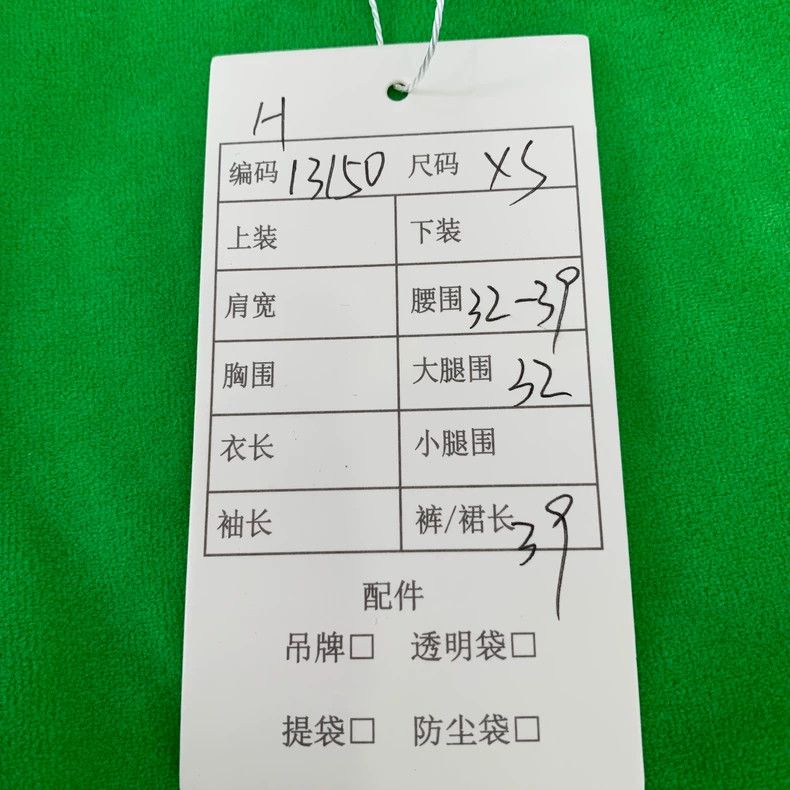 H
编码 13150 尺码 XS
上装 下装
肩宽 腰围 32-39
胸围 大腿围 32
衣长 小腿围
袖长 裤/裙长 39
配件
吊牌□ 透明袋□
提袋□ 防尘袋□